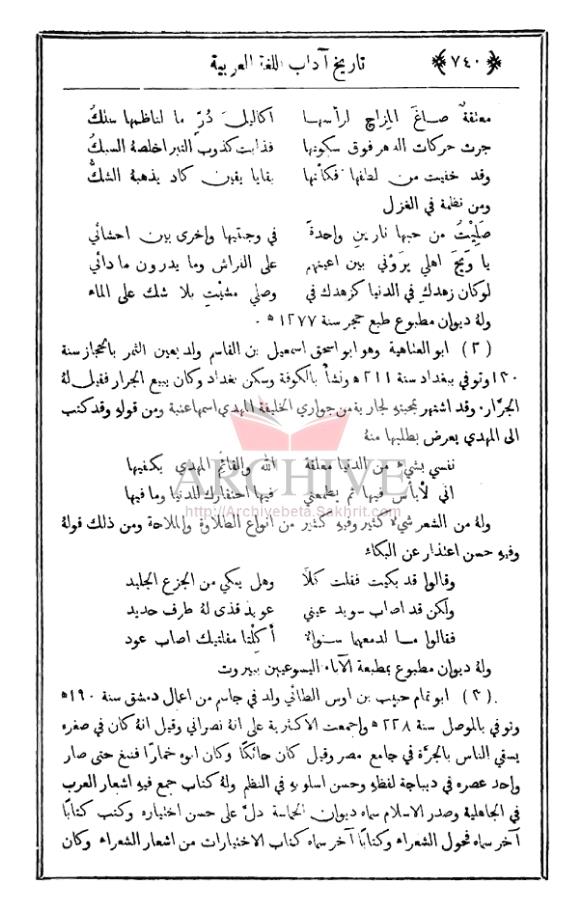 ﴿ ٧٤٠ ﴾ تاريخ آداب اللغة العربية
معتقةٌ صاغَ المزاجُ لرأسها اكاليلَ دُرٍّ ما لناظمها سلكُ
جرت حركات الدهر فوق سكونها فذابت كذوب التبر اخلصهُ السبكُ
وقد خفيت من لطفها فكأنها بقايا يقين كاد يذهبهُ الشكُّ
ومن نظمهِ في الغزل
صَلِيْتُ من حبها نارينِ واحدةَ في وجنتيها واخرى بين احشائي
يا وَيْحَ اهلي يَرَوْني بين اعينهم على الفراش وما يدرون ما دائي
لو كان زهدكِ في الدنيا كزهدك في وصلي مشيْتِ بلا شك على الماء
ولهُ ديوان مطبوع طبع حجر سنة ١٢٧٧ ه ٠
(٢) ابو العتاهية وهو ابو اسحق اسمعيل بن القاسم ولد بعين التمر بالحجاز سنة
١٣٠ وتوفي ببغداد سنة ٢١١ ه ونشأ بالكوفة وسكن بغداد وكان يبيع الجرار فقيل لهُ
الجرَّار. وقد اشتهر بمحبتهِ لجارية من جواري الخليفة المهدي اسمها عتبة ومن قولهِ وقد كتب
الى المهدي يعرض بطلبها منهُ
نفسي بشيءٍ من الدنيا معلقة الله والقائم المهدي يكفيها
اني لأيأس فيها ثم يطمعني فيها احتقارك للدنيا وما فيها
ARCHIVE
http://Archivebeta.Sakhrit.com
ولهُ من الشعر شيءٌ كثير وفيهِ كثير من انواع الطلاوة والملاحة ومن ذلك قولهُ
وفيهِ حسن اعتذار عن البكاء
وقالوا قد بكيت فقلت كلَّا وهل يبكي من الجزع الجليد
ولكن قد اصاب سويد عيني عويذ قذى لهُ طرف حديد
فقالوا ما لدمعهما سواءٌ أكِلْتا مقلتيك اصاب عود
ولهُ ديوان مطبوع بمطبعة الآباء اليسوعيين ببيروت
(٣) ابو تمام حبيب بن اوس الطائي ولد في جاسم من اعمال دمشق سنة ١٩٠ ه
وتوفي بالموصل سنة ٢٢٨ ه واجمعت الاكثرية على انهُ نصراني وقيل انهُ كان في صغره
يسقي الناس بالجرَّة في جامع مصر وقيل كان حائكًا وكان ابوه خمارًا فنبغ حتى صار
واحد عصره في ديباجة لفظهِ وحسن اسلوبهِ في النظم ولهُ كتاب جمع فيهِ اشعار العرب
في الجاهلية وصدر الاسلام سماه ديوان الحماسة دلَّ على حسن اختياره وكتب كتابًا
آخر سماه فحول الشعراء وكتابًا آخر سماه كتاب الاختيارات من اشعار الشعراء وكان